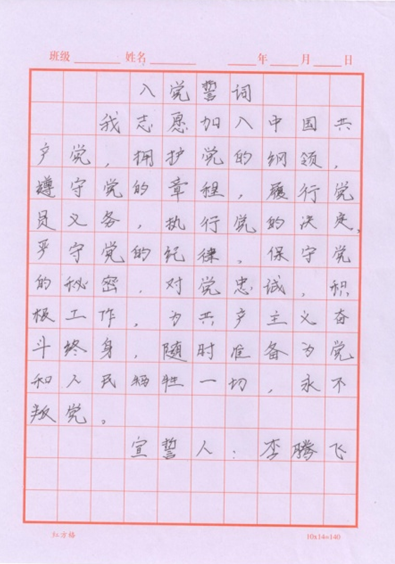 班级 姓名 年 月 日
入党誓词
我志愿加入中国共
产党，拥护党的纲领，
遵守党的章程，履行党
员义务，执行党的决定，
严守党的纪律，保守党
的秘密，对党忠诚，积
极工作，为共产主义奋
斗终身，随时准备为党
和人民牺牲一切，永不
叛党。
宣誓人：李腾飞
10x14=140